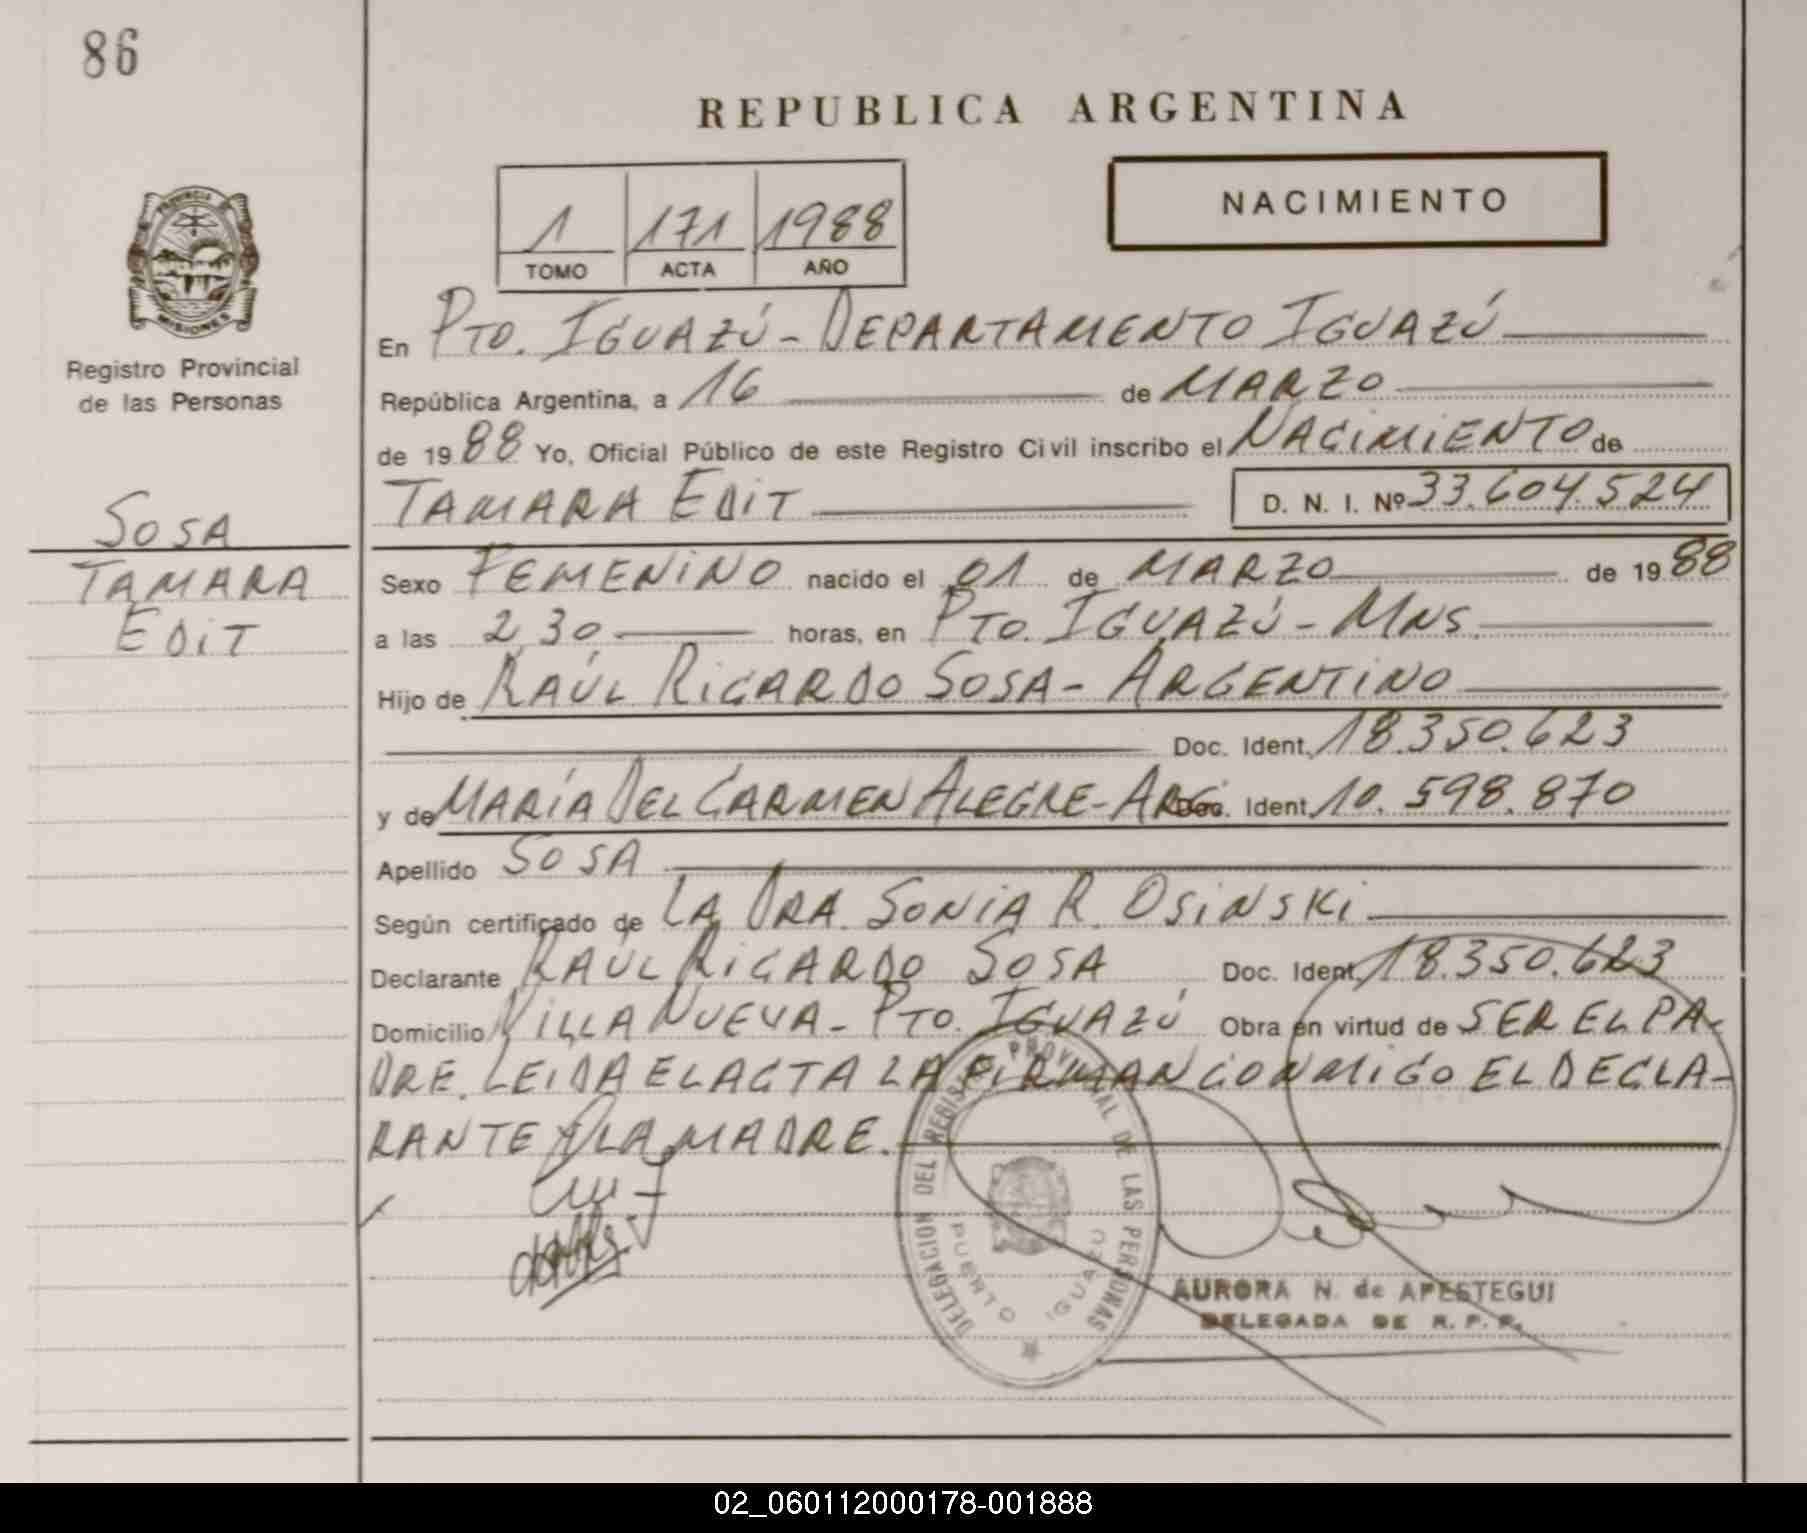 86
REPUBLICA ARGENTINA
1 171 1988
TOMO ACTA AÑO
NACIMIENTO
PROVINCIA
MISIONES
Registro Provincial
de las Personas
En PTO. IGUAZÚ - DEPARTAMENTO IGUAZÚ
República Argentina, a 16 de MARZO
de 1988 Yo, Oficial Público de este Registro Civil inscribo el NACIMIENTO de
TAMARA EDIT D. N. I. Nº 33.604.524
SOSA
TAMARA
EDIT
Sexo FEMENINO nacido el 01 de MARZO de 1988
a las 2,30 horas, en PTO. IGUAZÚ - MNS.
Hijo de RAÚL RICARDO SOSA - ARGENTINO
Doc. Ident. 18.350.623
y de MARÍA DEL CARMEN ALEGRE - ARG. Doc. Ident. 10.598.870
Apellido SOSA
Según certificado de LA DRA. SONIA R. OSINSKI
Declarante RAÚL RICARDO SOSA Doc. Ident. 18.350.623
Domicilio VILLA NUEVA - PTO. IGUAZÚ Obra en virtud de SER EL PA-
DRE. LEIDA EL ACTA LA FIRMAN CONMIGO EL DECLA-
RANTE Y LA MADRE.
DELEGACION DEL REGISTRO PROVINCIAL DE LAS PERSONAS
PUERTO IGUAZU
AURORA N. de APESTEGUI
DELEGADA DE R. P. P.
02_060112000178-001888